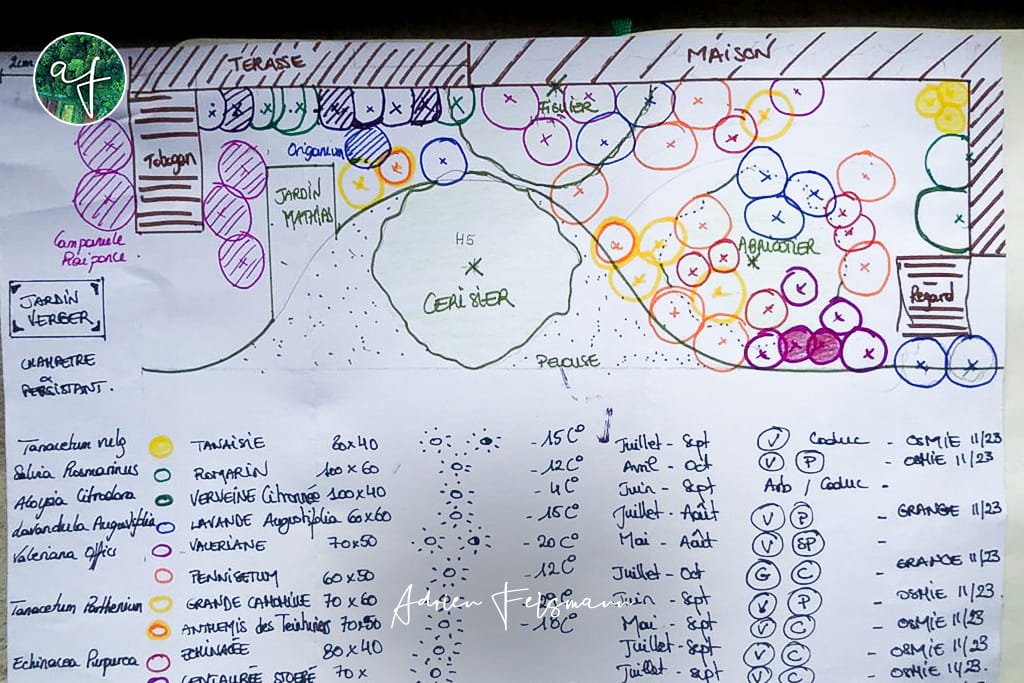 2cm
af
TERASSE
MAISON
FIGUIER
Tobogan
Origanum
JARDIN
MATHIAS
H5
CERISIER
ABRICOTIER
Regard
Campanule
Raiponce
JARDIN
VERGER
CHAMPETRE
PERSISTANT.
PELOUSE
TANAISIE 80x40 -15C° Juillet - Sept V Caduc - OSMIE 11/23
Salvia Rosmarinus ROMARIN 100x60 -12C° Avril - Oct V P - OSMIE 11/23
Aloysia Citrodora VERVEINE Citronnée 100x40 -4C° Juin - Sept Arb / Caduc -
Lavandula Augustifolia LAVANDE Augustifolia 60x60 -15C° Juillet - Août V P - GRANGE 11/23
Valeriana Offici VALERIANE 70x50 -20C° Mai - Août V SP -
PENNISETUM 60x50 -12C° Juillet - Oct G C - GRANGE 11/23
Tanacetum Parthenium GRANDE CAMOMILLE 70x60 Juin - Sept V P - OSMIE 11/23
ANTHEMIS des Teinturiers 70x50 Mai - Sept V C - OSMIE 11/23
Echinacea Purpurea ECHINACÉE 80x40 Juillet - Sept V C - OSMIE 11/23
CENTAURÉE STOEBE 70x Juillet - Sept V C - OSMIE 11/23.
Adrien Felsmann